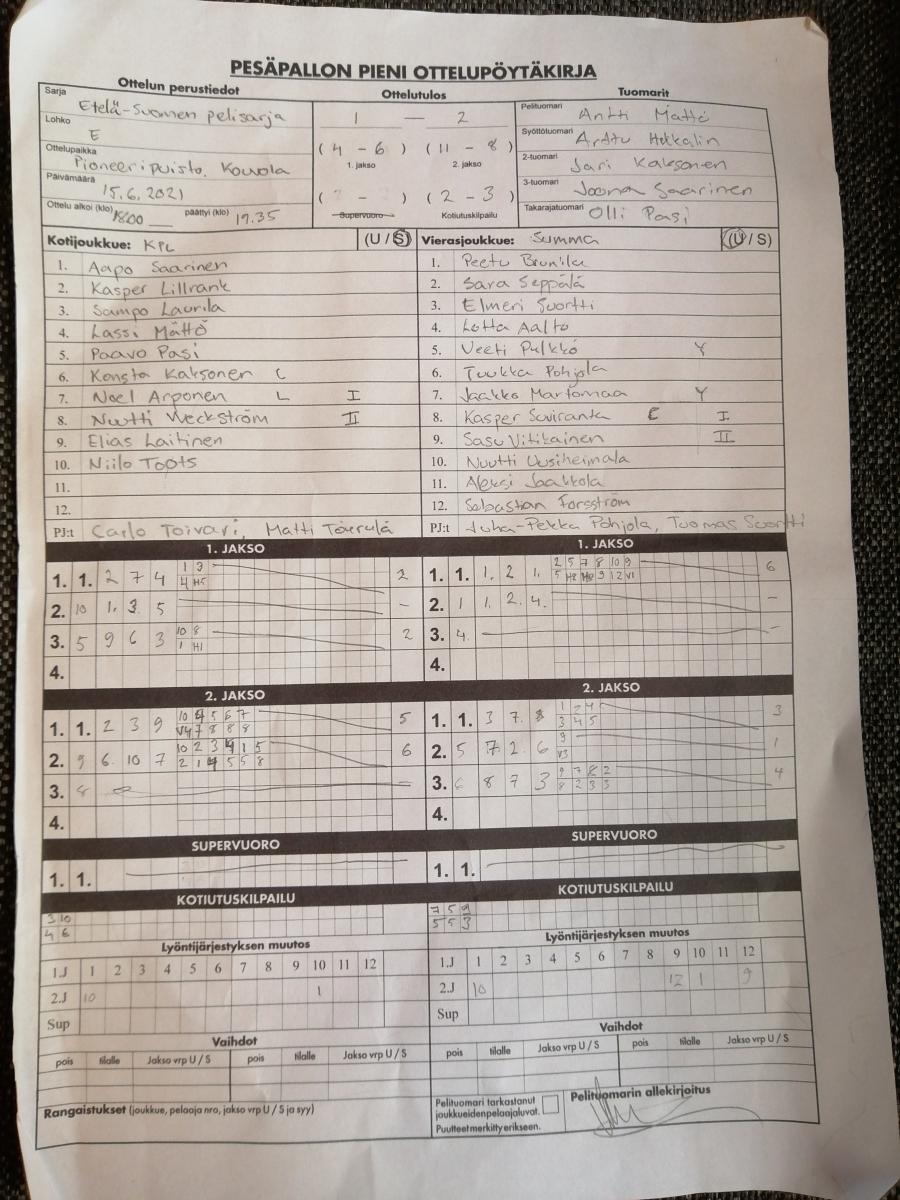 PESÄPALLON PIENI OTTELUPÖYTÄKIRJA
Ottelun perustiedot Ottelutulos Tuomarit
Sarja Etelä-Suomen pelisarja
Lohko E
Ottelupaikka Pioneeripuisto, Kouvola
Päivämäärä 15.6.2021
Ottelu alkoi (klo) 18.00 päättyi (klo) 19.35
1 — 2
( 4 - 6 ) ( 11 - 8 )
1. jakso 2. jakso
( - ) ( 2 - 3 )
Supervuoro Kotiutuskilpailu
Pelituomari Antti Mättö
Syöttötuomari Arttu
2-tuomari Jari Kaksonen
3-tuomari Joona Saarinen
Takarajatuomari Olli Pasi
Kotijoukkue: KPL (U / S)
1. Aapo Saarinen
2. Kasper Lillrank
3. Sampo Laurila
4. Lassi Mättö
5. Paavo Pasi
6. Konsta Kaksonen C
7. Noel Arponen L I
8. Nuutti Weckström II
9. Elias Laitinen
10. Niilo Toots
11.
12.
PJ:t Carlo Toivari, Matti
Vierasjoukkue: Summa (U / S)
1. Peetu Brunila
2. Sara Seppälä
3. Elmeri Suortti
4. Lotta Aalto
5. Veeti Pulkkö Y
6. Tuukka Pohjola
7. Jaakko Martomaa Y
8. Kasper Suviranta E I
9. Sasu Vitikainen II
10. Nuutti Uusiheimala
11. Aleksi Jaakkola
12. Sebastian Forsström
PJ:t Juha-Pekka Pohjola, Tuomas Suortti
1. JAKSO
1. 1. 2 7 4 2
1 3
4 H5
2. 10 1. 3. 5 -
3. 5 9 6 3 2
10 8
1 H1
4.
1. JAKSO
1. 1. 1. 2 1. 6
2 5 7 8 10 9
5 H8 H9 9 12 V1
2. 1 1. 2 4. -
3. 4. -
4.
2. JAKSO
1. 1. 2 3 9 5
10 4 5 6 7
V4 7 8 8 8
2. 9 6. 10 7 6
10 2 3 4 1 5
2 1 4 5 5 8
3. 8 -
4.
2. JAKSO
1. 1. 3 7. 8 3
1 2 4
3 4 5
2. 5 7 2. 6 1
3
V3
3. 6 8 7 3 4
9 7 8 2
8 2 3 3
4.
SUPERVUORO
1. 1.
SUPERVUORO
1. 1.
KOTIUTUSKILPAILU
3 10
4 6
KOTIUTUSKILPAILU
7 5 9
5 5 3
Lyöntijärjestyksen muutos
1.J 1 2 3 4 5 6 7 8 9 10 11 12
2.J 10 1
Sup
Lyöntijärjestyksen muutos
1.J 1 2 3 4 5 6 7 8 9 10 11 12
2.J 10 12 1 9
Sup
Vaihdot
pois tilalle Jakso vrp U / S pois tilalle Jakso vrp U / S
Vaihdot
pois tilalle Jakso vrp U / S pois tilalle Jakso vrp U / S
Rangaistukset (joukkue, pelaaja nro, jakso vrp U / S ja syy)
Pelituomari tarkastanut
joukkueidenpelaajaluvat.
Puutteet merkitty erikseen.
Pelituomarin allekirjoitus